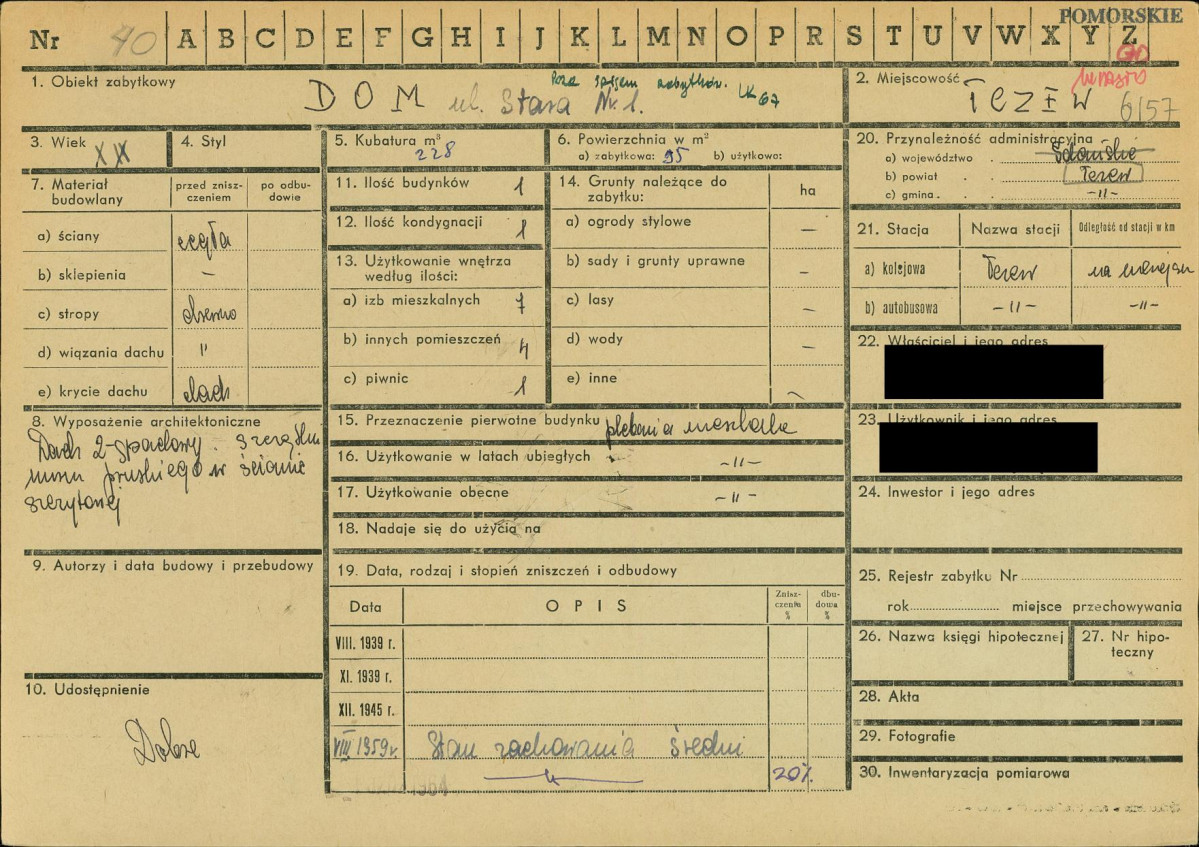 POMORSKIE
Nr 40 A B C D E F G H I J K L M N O P R S T U V W X Y Z
1. Obiekt zabytkowy
DOM ul. Stara Nr 1.
Poza spisem zabytków. UK 67
2. Miejscowość
miasto
TCZEW 6/57
3. Wiek XIX
4. Styl
5. Kubatura m³
228
6. Powierzchnia w m²
a) zabytkowa: 95 b) użytkowo:
7. Materiał budowlany
przed znisz-
czeniem
po odbu-
dowie
a) ściany cegła
b) sklepienia –
c) stropy drewno
d) wiązania dachu "
e) krycie dachu dach
8. Wyposażenie architektoniczne
Dach 2-spadowy. szczegółu
muru pruskiego w ścianie
szczytowej
9. Autorzy i data budowy i przebudowy
10. Udostępnienie
Dobre
11. Ilość budynków 1
12. Ilość kondygnacji 1
13. Użytkowanie wnętrza
według ilości:
a) izb mieszkalnych 7
b) innych pomieszczeń 4
c) piwnic 1
14. Grunty należące do
zabytku:
ha
a) ogrody stylowe –
b) sady i grunty uprawne –
c) lasy –
d) wody –
e) inne ~
15. Przeznaczenie pierwotne budynku plebania mieszkalne
16. Użytkowanie w latach ubiegłych -"-
17. Użytkowanie obecne -"-
18. Nadaje się do użycia na
19. Data, rodzaj i stopień zniszczeń i odbudowy
Data
OPIS
Znisz-
czenie
%
dbu-
dowa
%
VIII. 1939 r.
XI. 1939 r.
XII. 1945 r.
VIII 1959 r. Stan zachowania średni
20%
20. Przynależność administracyjna
a) województwo Gdańskie
b) powiat Tczew
c) gmina -"-
21. Stacja
Nazwa stacji
Odległość od stacji w km
a) kolejowa Tczew na miejscu
b) autobusowa -"- -"-
22. Właściciel i jego adres
23. Użytkownik i jego adres
24. Inwestor i jego adres
25. Rejestr zabytku Nr
rok miejsce przechowywania
26. Nazwa księgi hipotecznej
27. Nr hipo-
teczny
28. Akta
29. Fotografie
30. Inwentaryzacja pomiarowa